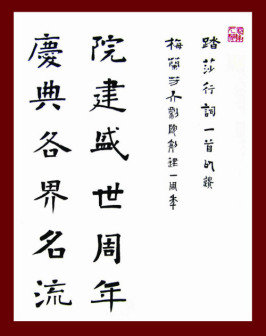 踏莎行詞一首的錄
梅蘭芳大劇院創建一周年
院建盛世周年
慶典各界名流